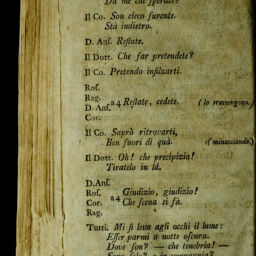 Da me che sperate?
Il Co. Son cieco furente.
Stà indietro.
D. Ans. Restate.
Il Dott. Che far pretendete?
Il Co. Pretendo infilzarti.
Ros.
Rag.
D. Ans. a 4 Restate, cedete. (lo trattengono.)
Cor.
Il Co. Saprò ritrovarti,
Ben fuori di quà. (minacciando.)
Il Dott. Oh! che precipizio!
Tiratelo in là.
D. Ans.
Ros. Giudizio, giudizio!
Cor. a4 Che scena si fà.
Rag.
Tutti. Mi si leva agli occhi il lume:
Esser parmi a notte oscura.
Dove son? — che tenebria! —
Sono solo? o in compagnia?